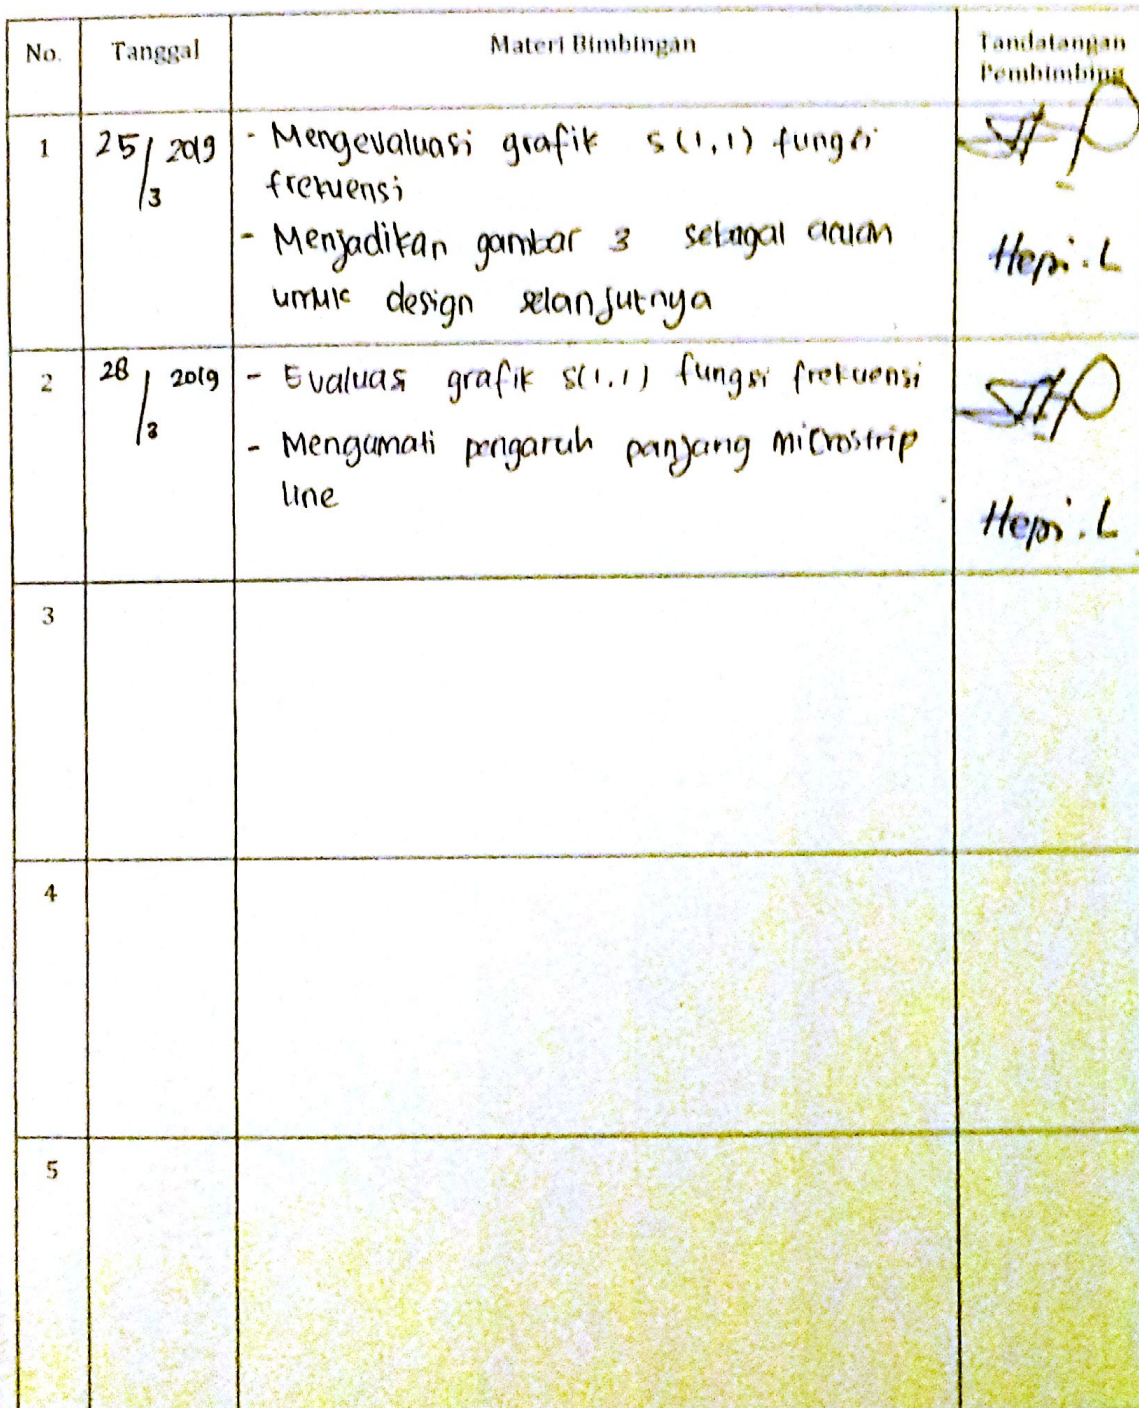 No. Tanggal Materi Bimbingan Tandatangan
Pembimbing
1 25/3 2019 - Mengevaluasi grafik s(1,1) fungsi
frekuensi
- Menjadikan gambar 3 sebagai acuan
untuk design selanjutnya
Hepi. L
2 28/3 2019 - Evaluasi grafik s(1,1) fungsi frekuensi
- Mengamati pengaruh panjang microstrip
line
Hepi. L
3
4
5